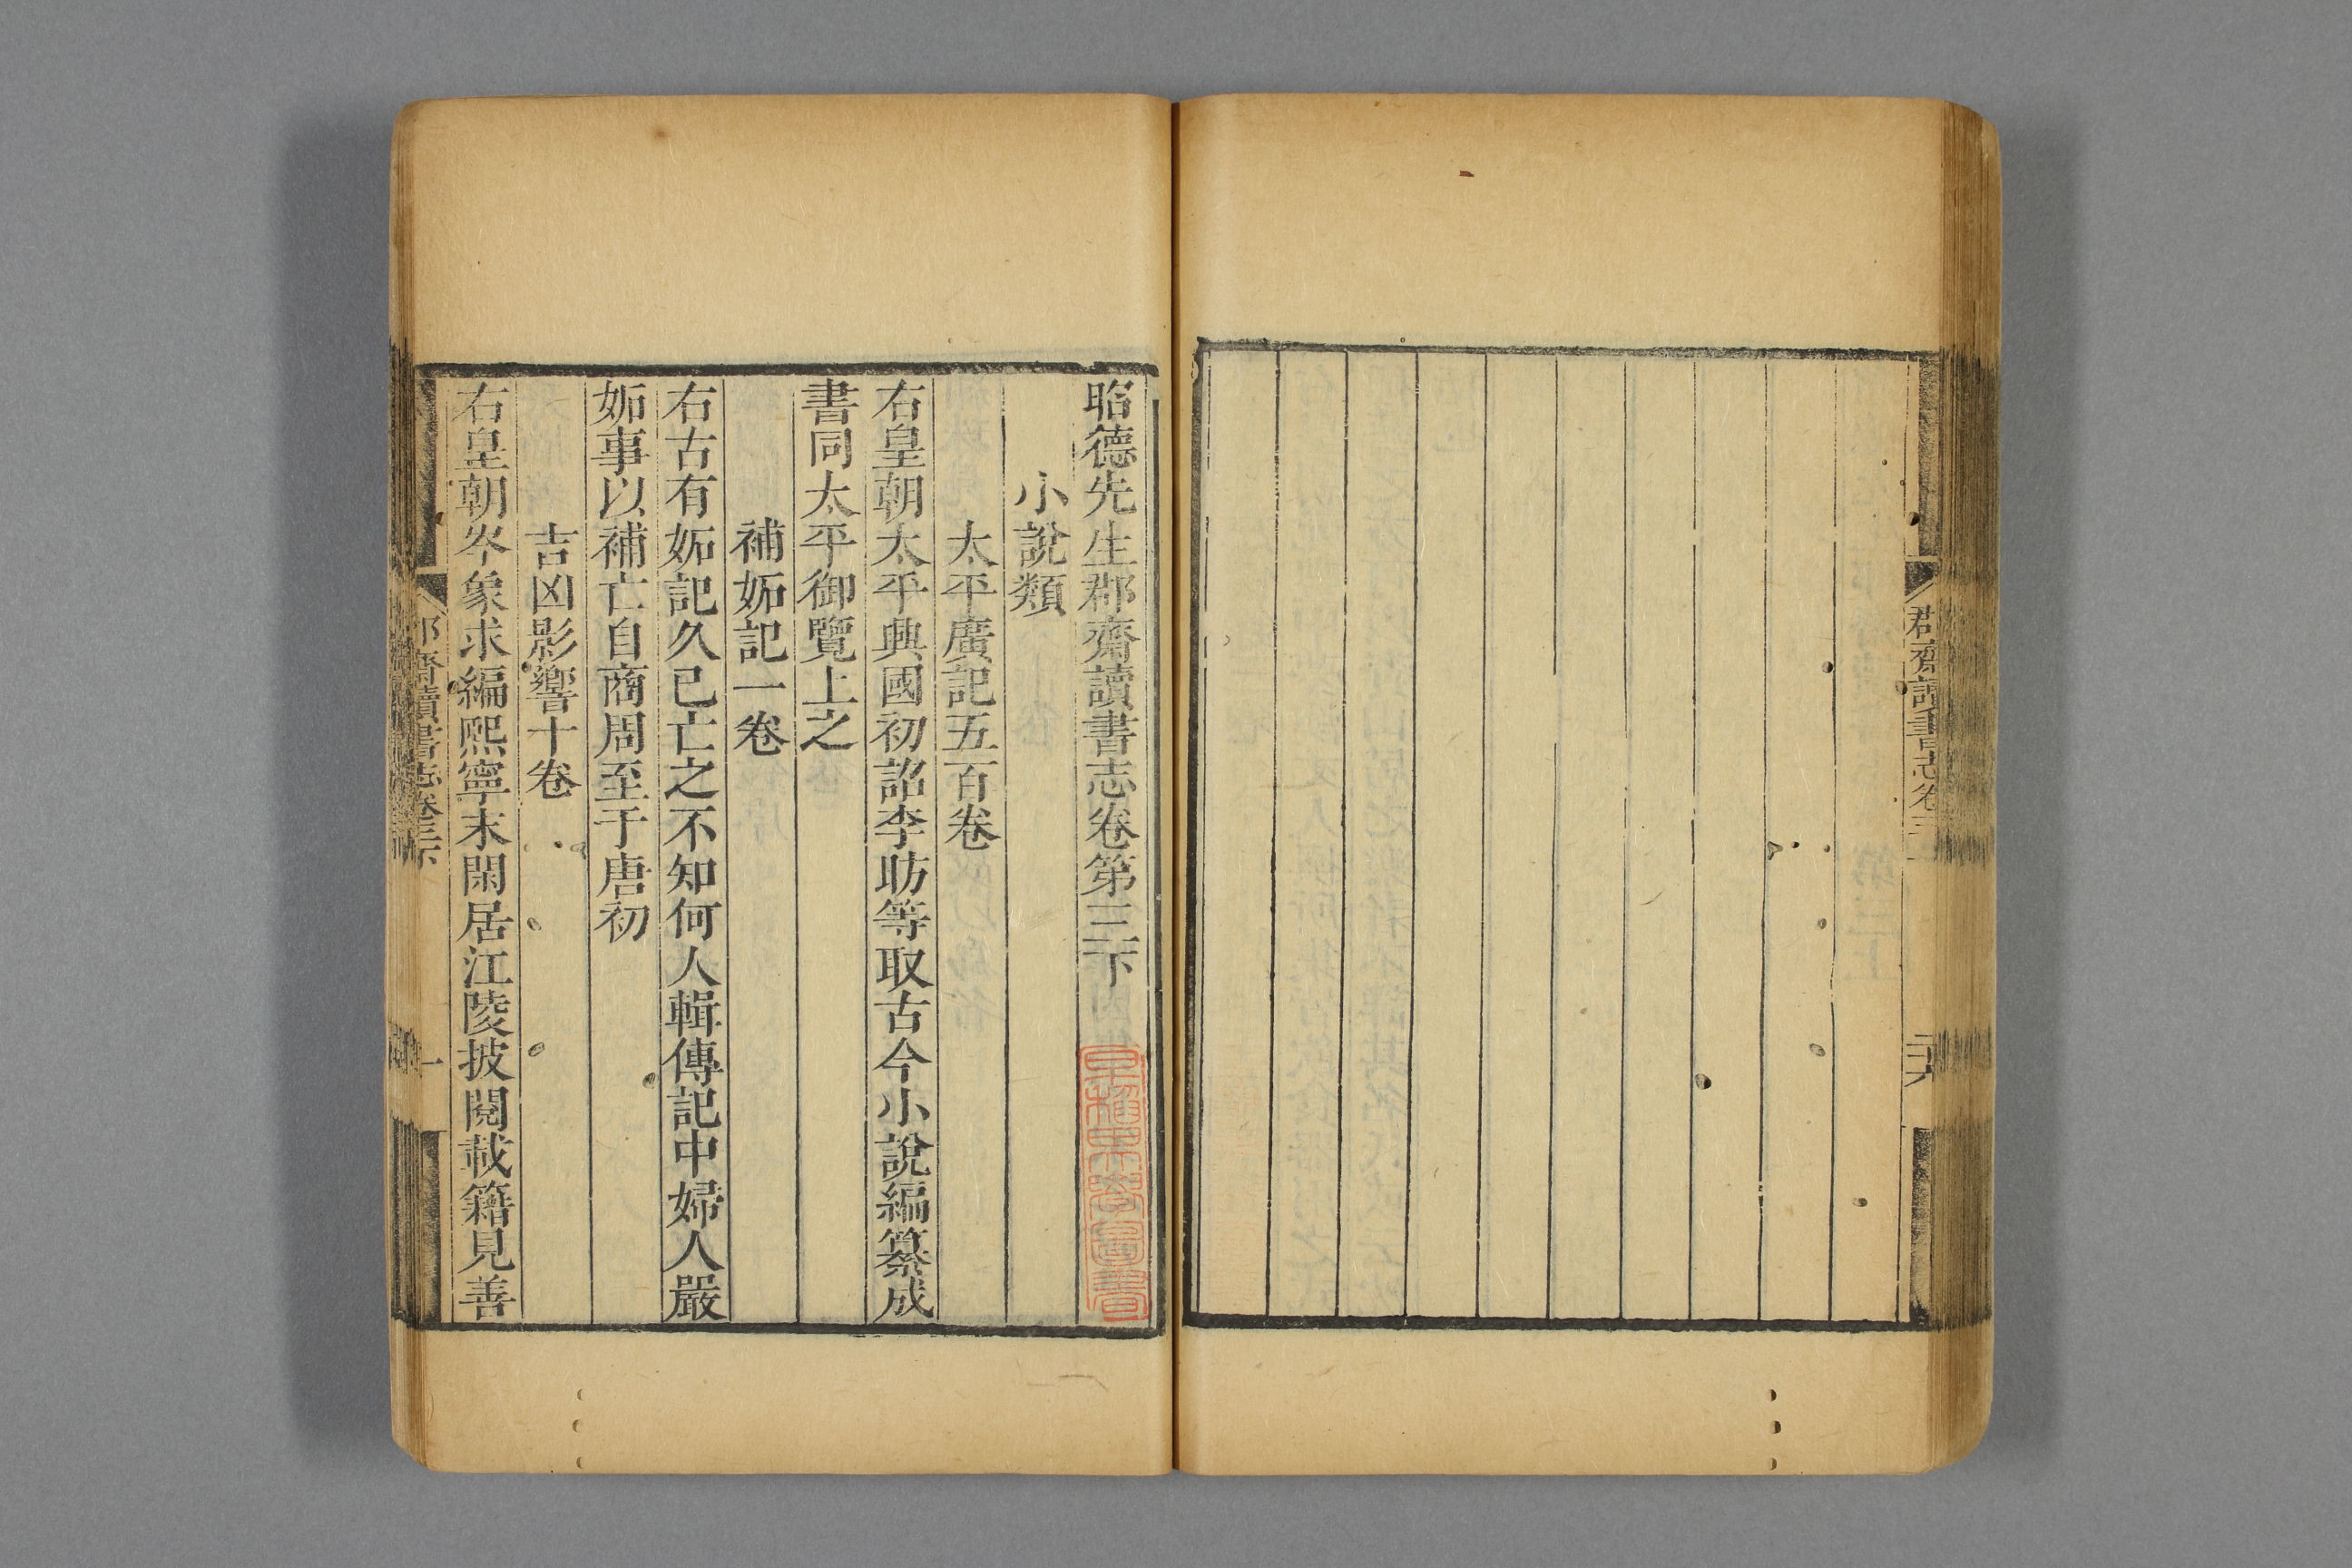 郡齋讀書志卷三上
二十六
昭德先生郡齋讀書志卷第三下
早稻田大學圖書
小說類
太平廣記五百卷
右皇朝太平興國初詔李昉等取古今小說編纂成
書同太平御覽上之
補妬記一卷
右古有妬記久已亡之不知何人輯傳記中婦人嚴
妬事以補亡自商周至于唐初
吉凶影響十卷
右皇朝岑象求編熙寧末閑居江陵披閱載籍見善
郡齋讀書志卷三下
一